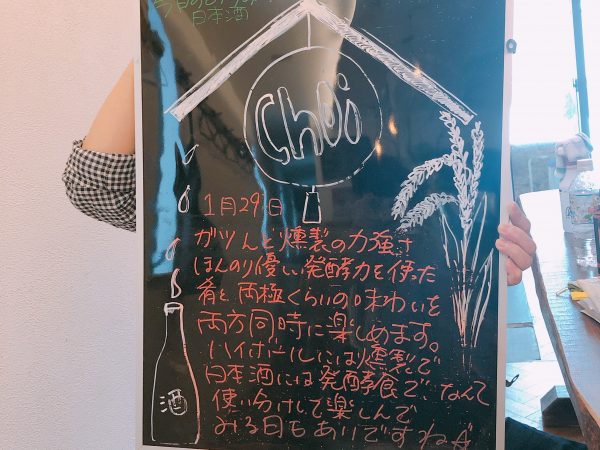 今日の
日本酒
Choi
1月29日
ガツんと燻製の力強さ
ほんのり優しい発酵力を使った
肴と両極くらいの味わいを
両方同時に楽しめます。
ハイボールには燻製で
日本酒には発酵食で、なんて
使い分けして楽しんで
みる日もありですね
酒